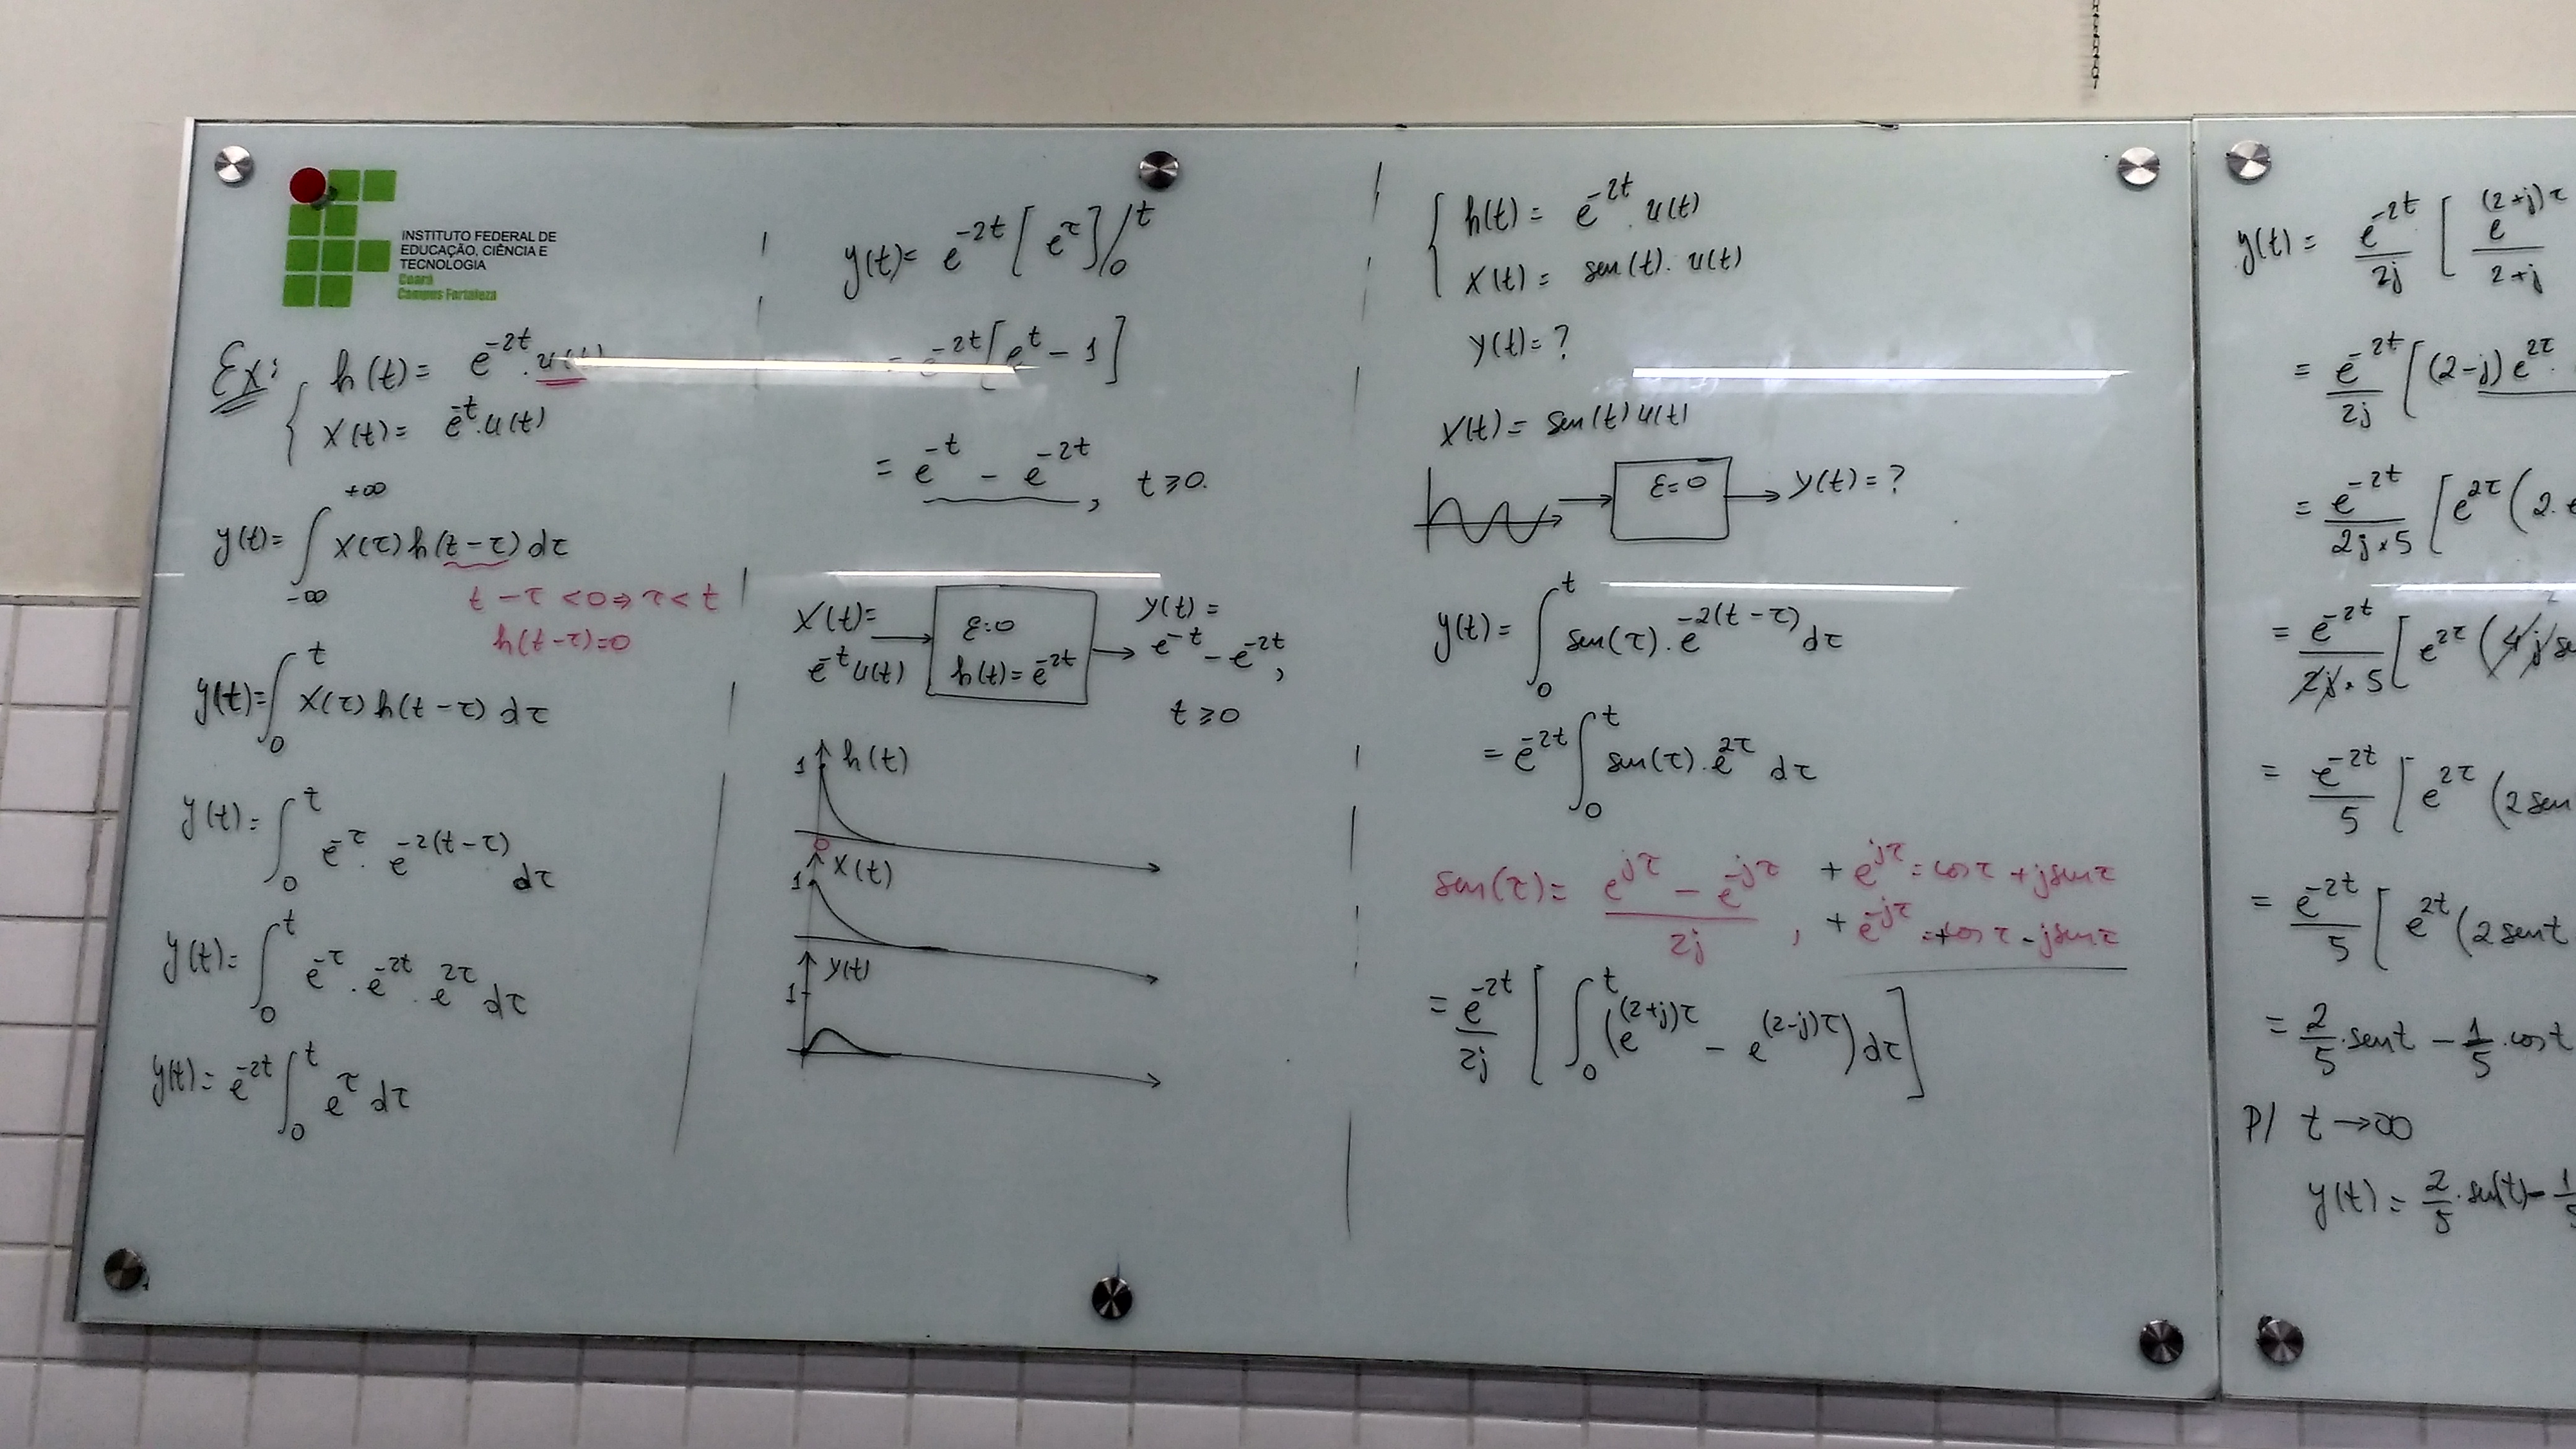 INSTITUTO FEDERAL DE
EDUCAÇÃO, CIÊNCIA E
TECNOLOGIA
Ceará
Campus Fortaleza
Ex:
h(t) = e^{-2t}.u(t)
x(t) = e^{-t}.u(t)
y(t) = ∫_{-∞}^{+∞} x(τ) h(t-τ) dτ
t-τ <0 ⇒ τ < t
h(t-τ)=0
y(t) = ∫_0^t x(τ) h(t-τ) dτ
y(t) = ∫_0^t e^{-τ}. e^{-2(t-τ)} dτ
y(t) = ∫_0^t e^{-τ}. e^{-2t}. e^{2τ} dτ
y(t) = e^{-2t} ∫_0^t e^τ dτ
y(t) = e^{-2t} [e^τ]/_0^t
= e^{-2t}[e^t - 1]
= e^{-t} - e^{-2t}, t ⩾ 0.
x(t) =
e^{-t}u(t)
ε=0
h(t) = e^{-2t}
y(t) =
e^{-t} - e^{-2t},
t ⩾ 0
1 h(t)
0
1 x(t)
y(t)
1
h(t) = e^{-2t}.u(t)
x(t) = sen(t).u(t)
y(t) = ?
x(t) = sen(t)u(t)
ε=0
y(t) = ?
y(t) = ∫_0^t sen(τ). e^{-2(t-τ)} dτ
= e^{-2t} ∫_0^t sen(τ). e^{2τ} dτ
sen(τ) = (e^{jτ} - e^{-jτ})/2j , + e^{jτ} = cosτ + jsenτ
+ e^{-jτ} = + cosτ - jsenτ
= e^{-2t}/2j [∫_0^t (e^{(2+j)τ} - e^{(2-j)τ}) dτ]
y(t) = e^{-2t}/2j [e^{(2+j)τ}/(2+j)
= e^{-2t}/2j [(2-j) e^{2τ}.
= e^{-2t}/(2j×5) [e^{2τ}(2.
= e^{-2t}/(2j.5) [e^{2τ}(4j
= e^{-2t}/5 [e^{2τ}(2sen
= e^{-2t}/5 [e^{2t}(2sent
= 2/5.sent - 1/5.cost
P/ t → ∞
y(t) = 2/5.sen(t) -